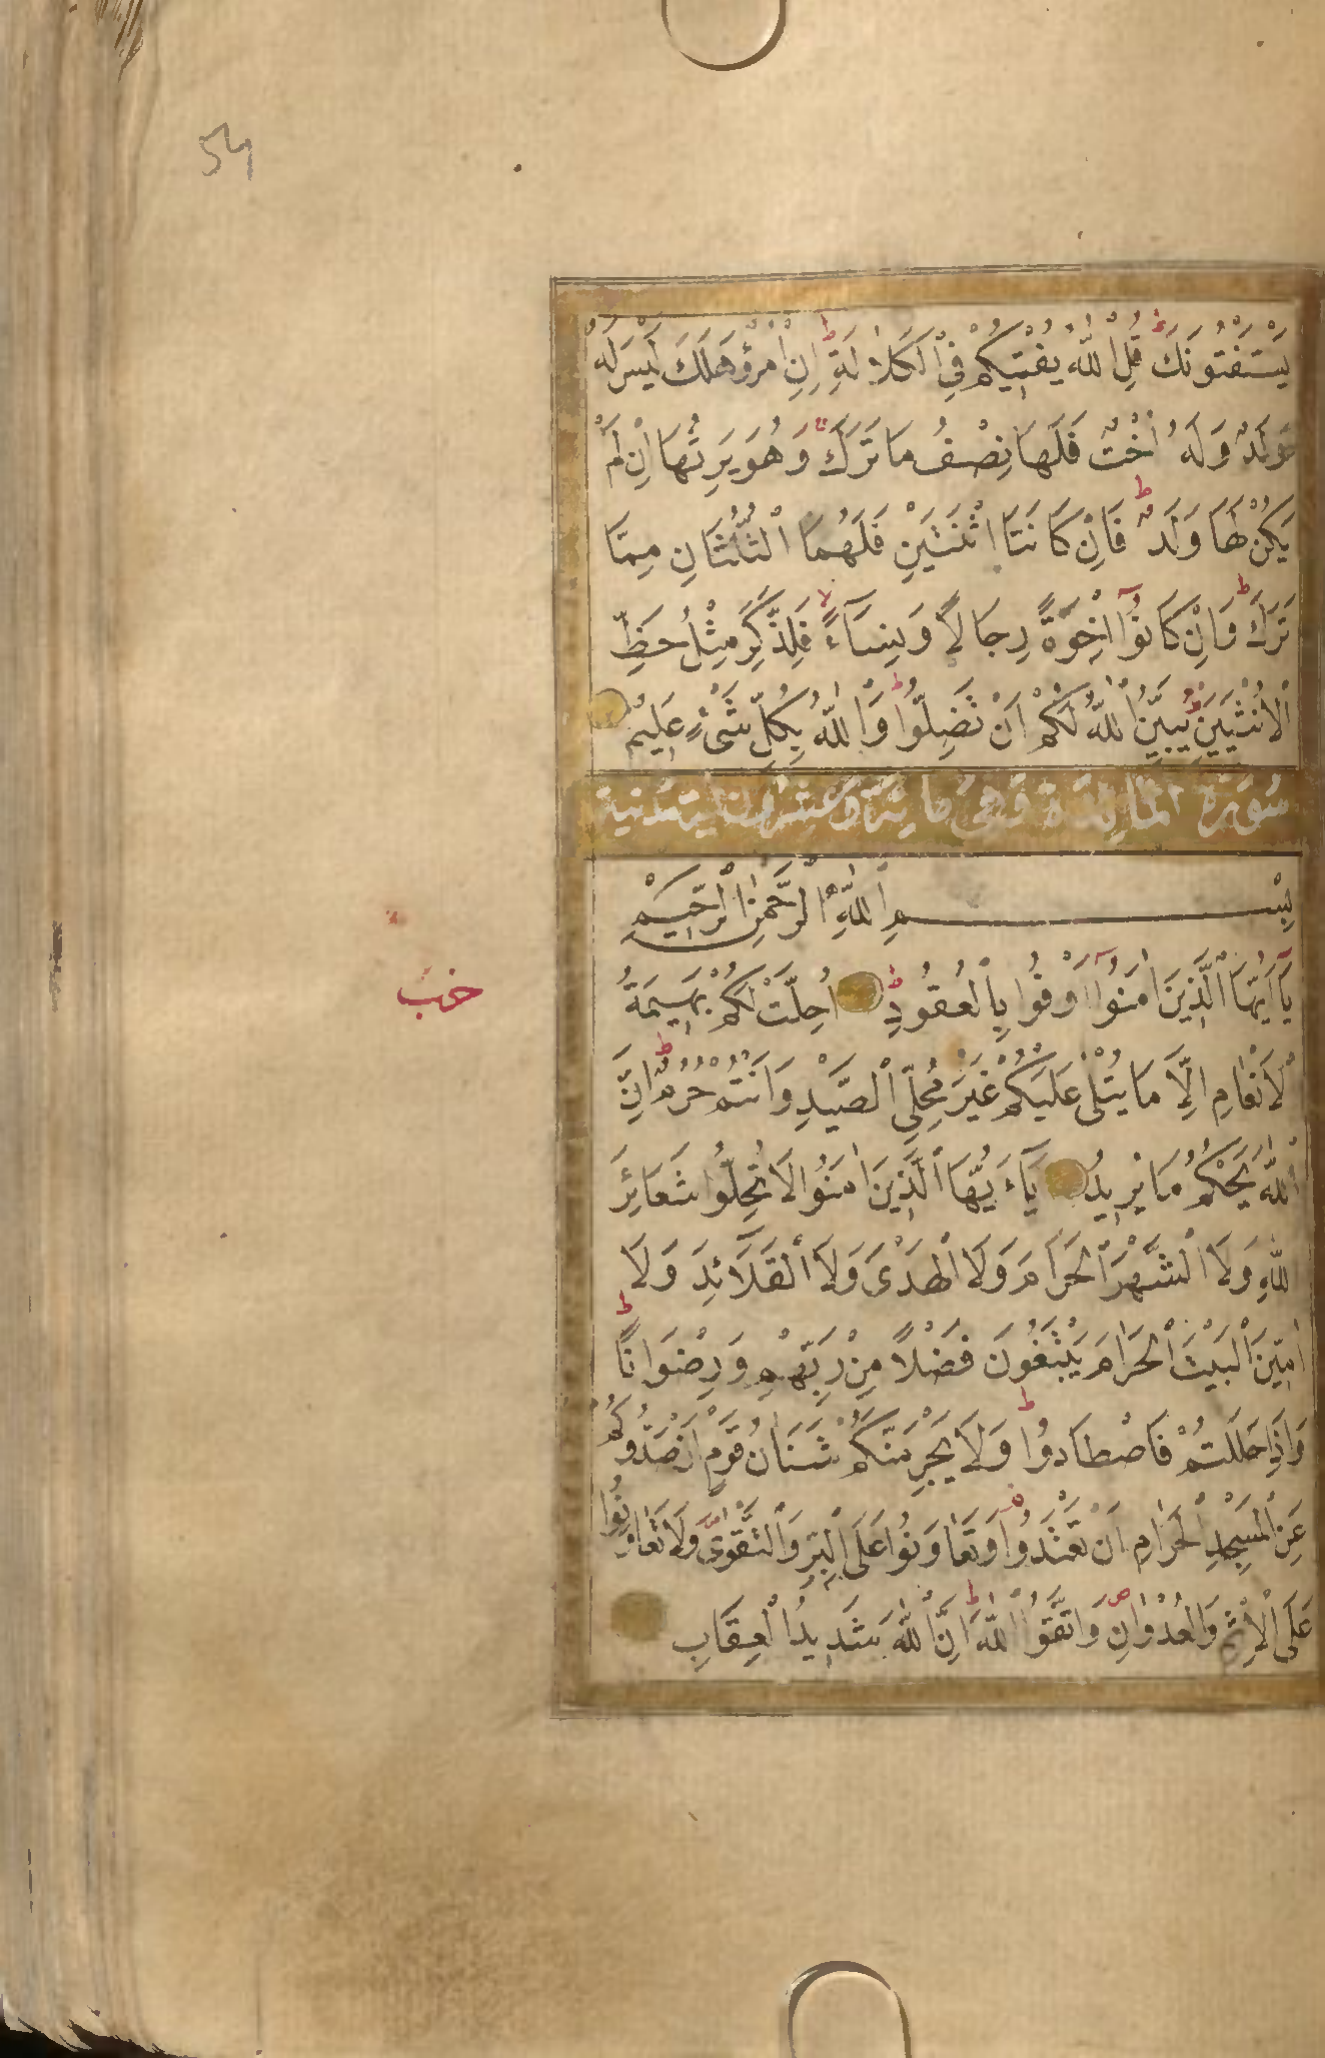 54
يَسْتَفْتُونَكَ قُلِ اللّٰهُ يُفْتِيكُمْ فِي الْكَلَالَةِ اِنِ امْرُؤٌ هَلَكَ لَيْسَ لَهُ
وَلَدٌ وَلَهُ اُخْتٌ فَلَهَا نِصْفُ مَا تَرَكَ وَهُوَ يَرِثُهَا اِنْ لَمْ
يَكُنْ لَهَا وَلَدٌ فَاِنْ كَانَتَا اثْنَتَيْنِ فَلَهُمَا الثُّلُثَانِ مِمَّا
تَرَكَ وَاِنْ كَانُوٓا اِخْوَةً رِجَالًا وَنِسَآءً فَلِلذَّكَرِ مِثْلُ حَظِّ
الْاُنْثَيَيْنِ يُبَيِّنُ اللّٰهُ لَكُمْ اَنْ تَضِلُّوا وَاللّٰهُ بِكُلِّ شَيْءٍ عَلِيمٌ
سُورَةُ الْمَائِدَةِ وَهِيَ مِائَة وَعِشْرُونَ آيَة مَدَنِيَّة
بِسْمِ اللّٰهِ الرَّحْمٰنِ الرَّحِيمِ
يَآ اَيُّهَا الَّذِينَ اٰمَنُوٓا اَوْفُوا بِالْعُقُودِ اُحِلَّتْ لَكُمْ بَهِيمَةُ
خب
الْاَنْعَامِ اِلَّا مَا يُتْلٰى عَلَيْكُمْ غَيْرَ مُحِلِّي الصَّيْدِ وَاَنْتُمْ حُرُمٌ اِنَّ
اللّٰهَ يَحْكُمُ مَا يُرِيدُ يَآءَيُّهَا الَّذِينَ اٰمَنُوا لَا تُحِلُّوا شَعَائِرَ
اللّٰهِ وَلَا الشَّهْرَ الْحَرَامَ وَلَا الْهَدْيَ وَلَا الْقَلَائِدَ وَلَا
اٰمِّينَ الْبَيْتَ الْحَرَامَ يَبْتَغُونَ فَضْلًا مِنْ رَبِّهِمْ وَرِضْوَانًا
وَاِذَا حَلَلْتُمْ فَاصْطَادُوا وَلَا يَجْرِمَنَّكُمْ شَنَاٰنُ قَوْمٍ اَنْ صَدُّوكُمْ
عَنِ الْمَسْجِدِ الْحَرَامِ اَنْ تَعْتَدُوا وَتَعَاوَنُوا عَلَى الْبِرِّ وَالتَّقْوٰى وَلَا تَعَاوَنُوا
عَلَى الْاِثْمِ وَالْعُدْوَانِ وَاتَّقُوا اللّٰهَ اِنَّ اللّٰهَ شَدِيدُ الْعِقَابِ